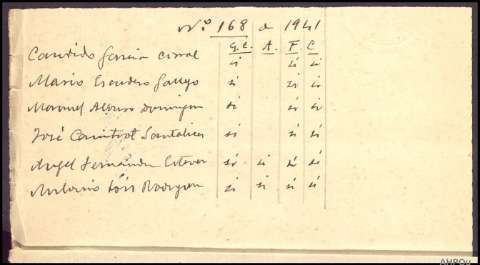 Nº 168 de 1941
G.C. A. F. C
Candido García Corral si si si
Mario Escudero Gallego si si si
Manuel Alonso Dominguez si si si
José Santalices si si si
Angel Fernández Estevez si si si si
Antonio Lois Rodriguez si si si si
AHPOu